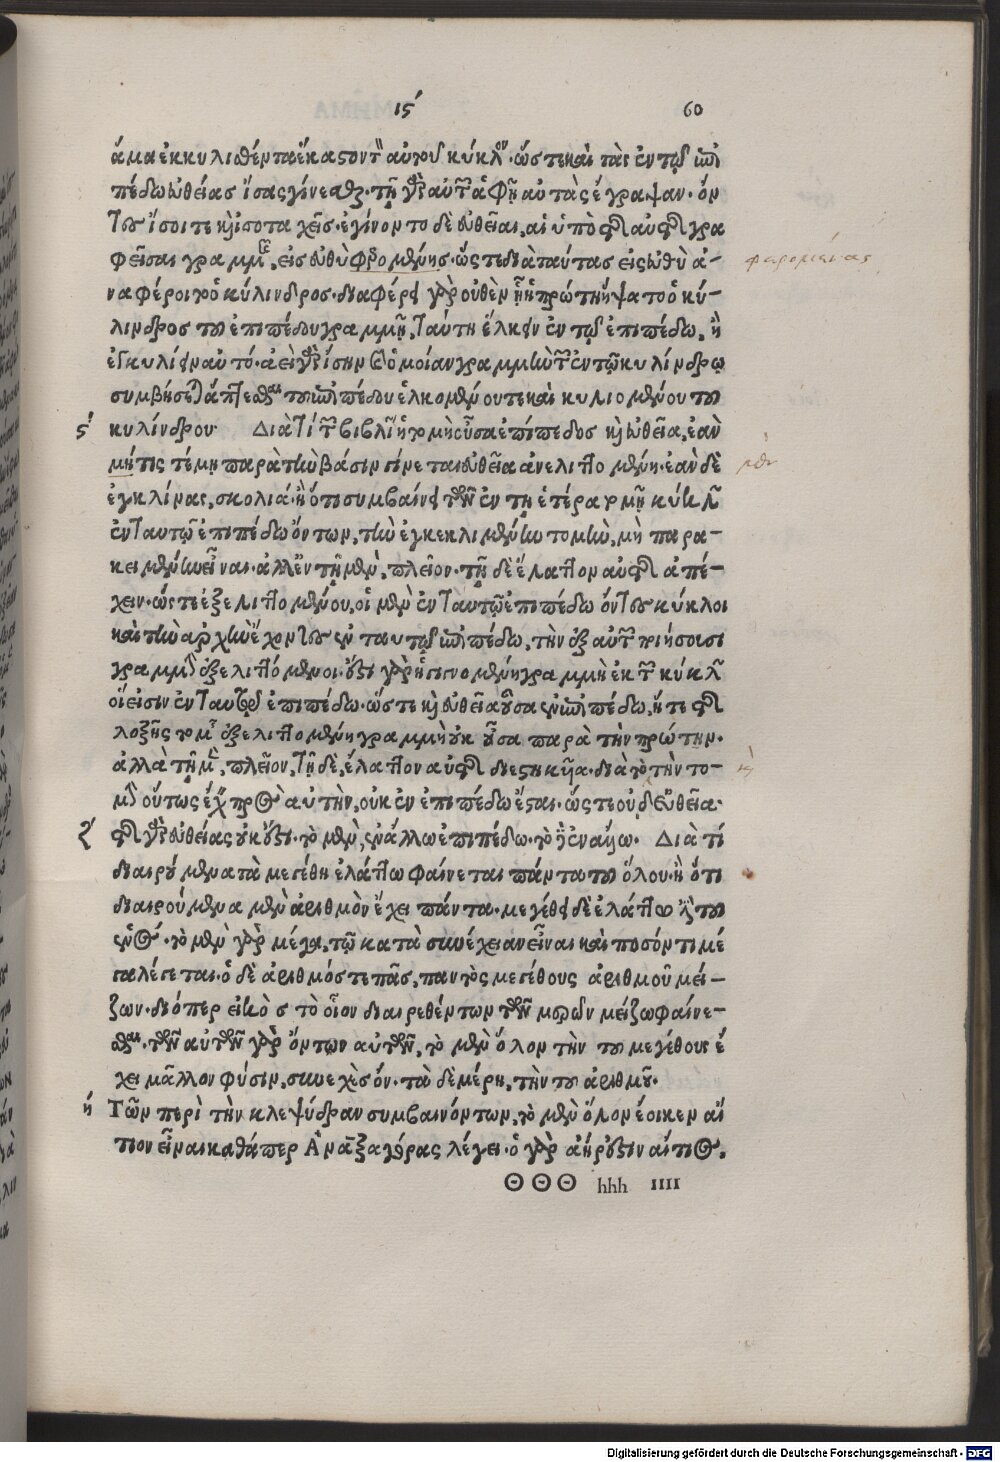 ιϛ΄ 60
ἅμα ἐκκυλισθέντα ἕκαστον τοῦ αὐτοῦ κύκλου· ὥστε καὶ τὰς ἐν τῷ ἐπι
πέδῳ εὐθείας ἴσας γίνεσθαι· τῇ γὰρ αὐτοῦ ἀφῇ αὐτὰς ἔγραψαν· ὄν
τες ἴσοι τε καὶ ἰσοταχεῖς· ἐγίνοντο δὲ εὐθεῖαι, αἱ ὑπὸ τῶν αὐτῶν γρα
φεῖσαι γραμμῆς, εἰς εὐθὺ φερομένης· ὥστε διὰ ταύτας εἰς εὐθὺ ἀ-
ναφέροιτο ὁ κύλινδρος· διαφέρει γὰρ οὐθὲν ἢ ᾗ πρώτῃ ἥψατο ὁ κύ-
λινδρος τοῦ ἐπιπέδου γραμμῇ, ταύτῃ ἕλκειν ἐν τῷ ἐπιπέδῳ, ἢ
ἐγκυλίειν αὐτό· ἀεὶ γὰρ ἴσην καὶ ὁμοίαν γραμμὴν τοῦ ἐν τῷ κυλίνδρῳ
συμβήσεται ἅπτεσθαι τοῦ ἐπιπέδου ἑλκομένου τε καὶ κυλιομένου τοῦ
ϛ΄ κυλίνδρου· Διὰ τί τοῦ βιβλίου ἡ τομὴ οὖσα ἐπίπεδος καὶ εὐθεῖα, ἐὰν
μή τις τέμῃ παρὰ τὴν βάσιν γίνεται εὐθεῖα ἀνελιττομένη· ἐὰν δὲ
ἐγκλίνας, σκολιά· ἢ ὅτι συμβαίνει τῶν ἐν τῇ ἑτέρᾳ τομῇ κύκλων
ἐν ταυτῷ ἐπιπέδῳ ὄντων, τὴν ἐγκεκλιμένην τομὴν, μὴ παρα-
κειμένην εἶναι· ἀλλ' ἐν τῇ μὲν, πλεῖον· τῇ δὲ ἔλαττον αὐτῶν ἀπέ-
χειν· ὥστε ἐξελιττομένου, οἱ μὲν ἐν ταυτῷ ἐπιπέδῳ ὄντες κύκλοι
καὶ τὴν ἀρχὴν ἔχοντες ἐν ταυτῷ ἐπιπέδῳ, τὴν ἐξ αὐτοῦ ποιήσουσι
γραμμὴν ἐξελιττόμενοι· ἔστι γὰρ ἡ γινομένη γραμμὴ ἐκ τοῦ κύκλων
οἵ εἰσιν ἐν ταυτῷ ἐπιπέδῳ· ὥστε καὶ εὐθεῖα οὖσα ἐν ἐπιπέδῳ, ἥ τε τῶν
λοξῆς τομῆς ἐξελιττομένη γραμμὴ οὐκ οὖσα παρὰ τὴν πρώτην·
ἀλλὰ τῇ μὲν, πλεῖον, τῇ δὲ, ἔλαττον αὐτῶν διεστηκυῖα· διὰ τὸ τὴν το-
μὴν οὕτως ἔχειν πρὸς αὐτὴν, οὐκ ἐν ἐπιπέδῳ ἔσται· ὥστε οὐδ' εὐθεῖα·
ζ΄ τῶν γὰρ εὐθείας οὐκ ἔστι· τὸ μὲν, ἐν ἄλλῳ ἐπιπέδῳ· τὸ δὲ ἐν ἄλλῳ· Διὰ τί
διαιρούμενα τὰ μεγέθη ἐλάττω φαίνεται πάντα τοῦ ὅλου· ἢ ὅτι
διαιρούμενα μὲν ἀριθμὸν ἔχει πάντα· μεγέθει δὲ ἐλάττω ἐστὶ τοῦ
ἑνός· τὸ μὲν γὰρ μέγα, τῷ κατὰ συνέχειαν εἶναι καὶ ποσόν τι μέ
γα λέγεται· ὁ δὲ ἀριθμός τε πᾶς, παντὸς μεγέθους ἀριθμοῦ μεί-
ζων· διόπερ εἰκὸς τὸ οἷον διαιρεθέντων τῶν μερῶν μείζω φαίνε-
σθαι· τῶν αὐτῶν γὰρ ὄντων αὐτῶν, τὸ μὲν ὅλον τὴν τοῦ μεγέθους ἔ
χει μᾶλλον φύσιν, συνεχὲς ὄν· τὰ δὲ μέρη, τὴν τοῦ ἀριθμοῦ·
η΄ Τῶν περὶ τὴν κλεψύδραν συμβαινόντων, τὸ μὲν ὅλον ἔοικεν αἴ
τιον εἶναι καθάπερ Ἀναξαγόρας λέγει· ὁ γὰρ ἀήρ ἐστιν αἴτιος,
ΘΘΘ hhh IIII
φερομένας
μὲν
Digitalisierung gefördert durch die Deutsche Forschungsgemeinschaft - DFG